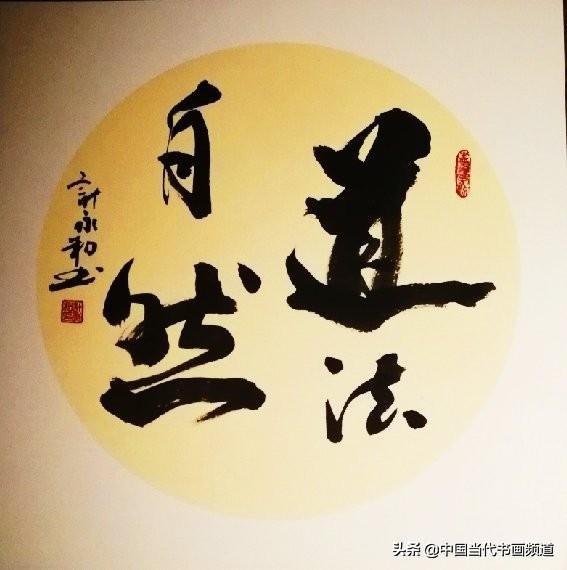 道法
自然
計永和書
头条 @中国当代书画频道